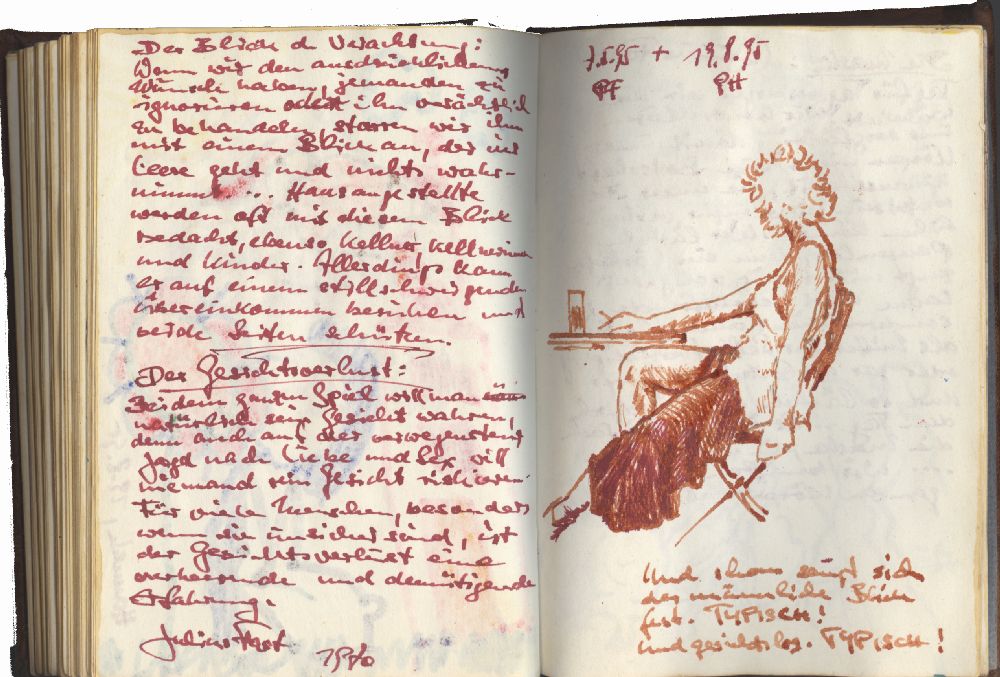 Der Blick der Verachtung:
Wenn wir den ausdrücklichen
Wunsch haben, jemanden zu
ignorieren oder ihn verächtlich
zu behandeln, starren wir ihn
mit einem Blick an, der ins
Leere geht und nichts wahr-
nimmt ... Hausangestellte
werden oft mit diesem Blick
bedacht, ebenso Kellner, Kellnerinnen
und Kinder. Allerdings kann
er auf einem stillschweigenden
Übereinkommen beruhen und
beide Seiten schützen.
Der Gesichtsverlust:
Bei dem ganzen Spiel will man
natürlich sein Gesicht wahren,
denn auch auf der verwegensten
Jagd nach Liebe und Sex will
niemand sein Gesicht riskieren.
Für viele Menschen, besonders
wenn sie unsicher sind, ist
der Gesichtsverlust eine
verheerende und demütigende
Erfahrung.
Julius Fast
1970
7.5.95 + 19.8.95
PF PH
Und schon saugt sich
der männliche Blick
fest. TYPISCH!
Und gesichtslos. TYPISCH!